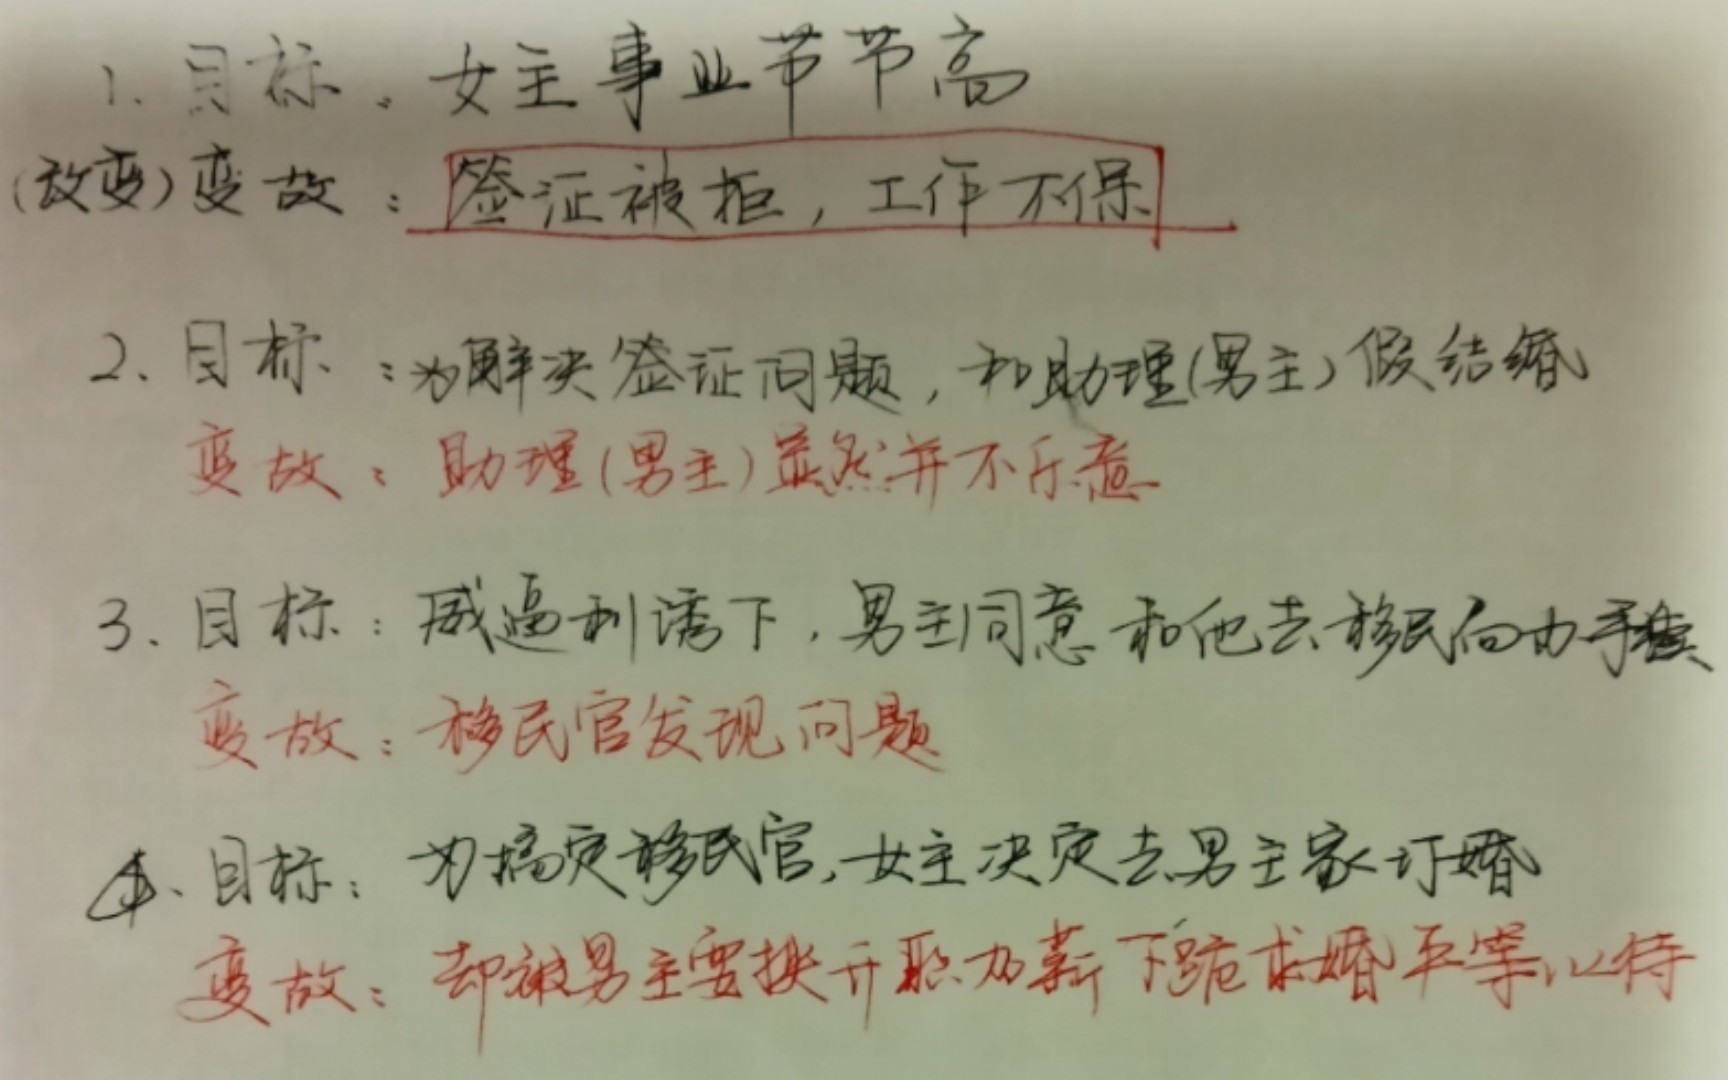 1. 目标：女主事业节节高
(改变)变故：签证被拒，工作不保
2. 目标：为解决签证问题，和助理(男主)假结婚
变故：助理(男主)显然并不乐意
3. 目标：威逼利诱下，男主同意和他去移民局办手续
变故：移民官发现问题
4. 目标：为搞定移民官，女主决定去男主家订婚
变故：却被男主要挟升职加薪下跪求婚平等以待